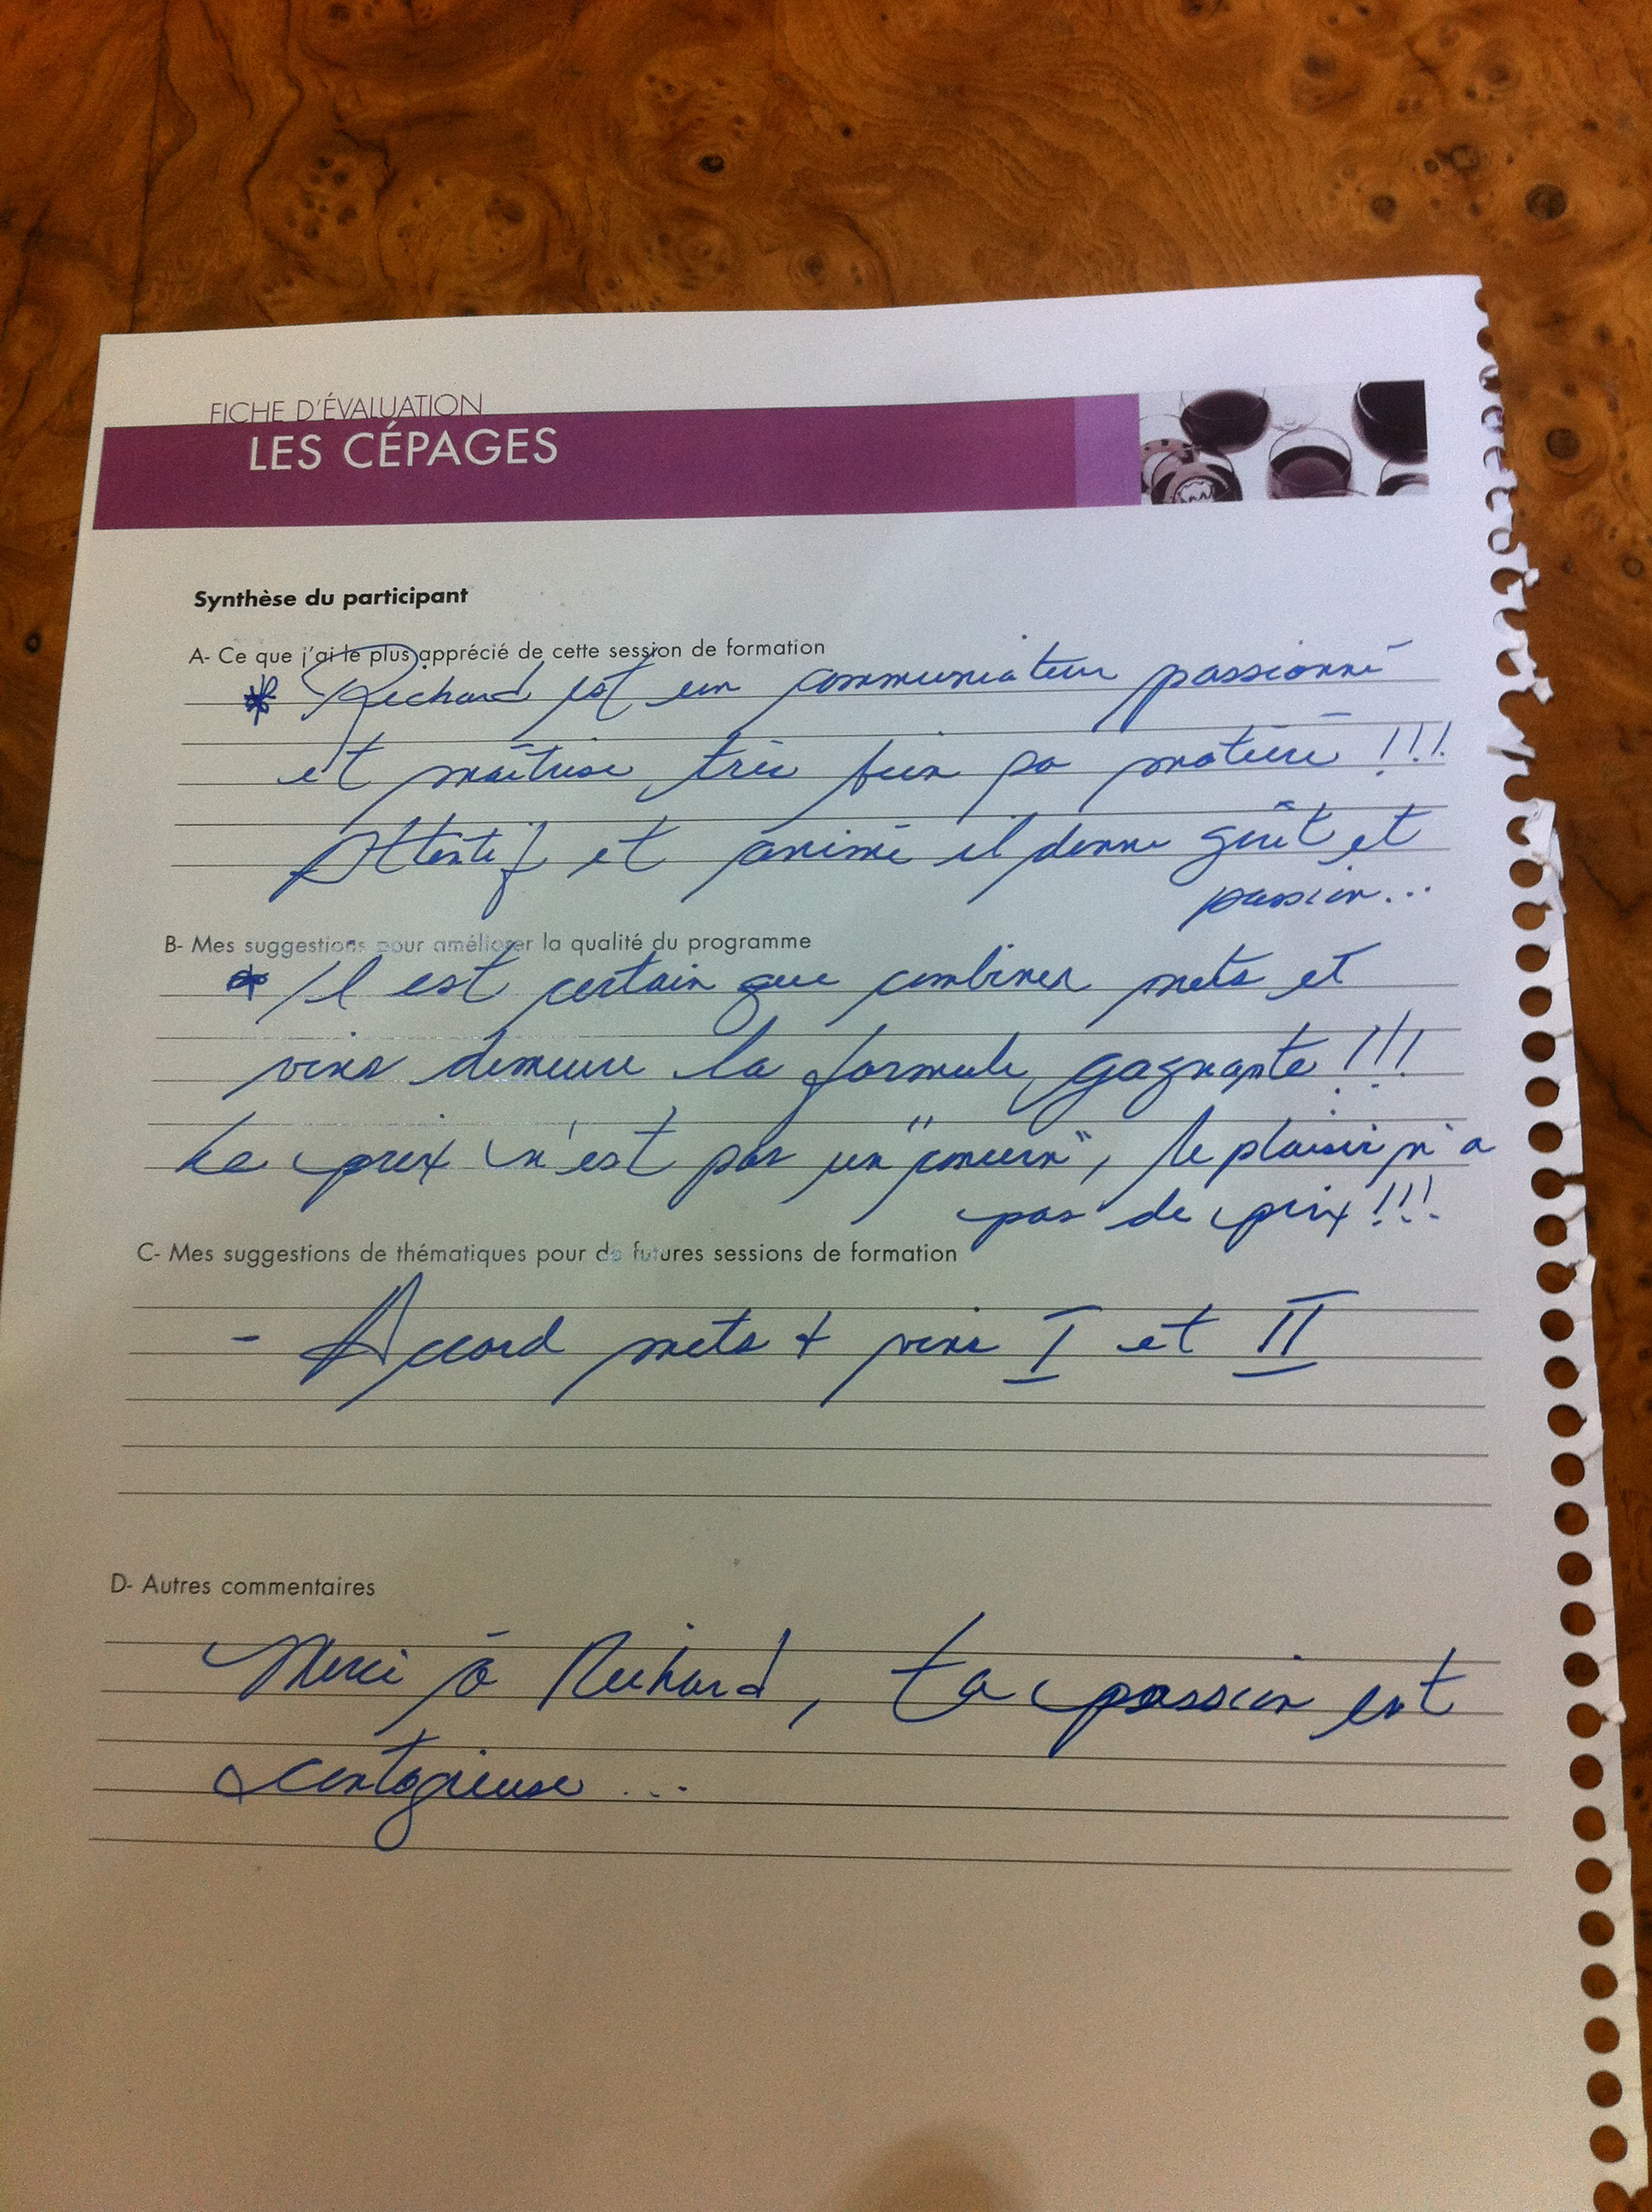 FICHE D'ÉVALUATION
LES CÉPAGES
Synthèse du participant
A- Ce que j'ai le plus apprécié de cette session de formation
* Richard est un communicateur passionné
et maîtrise très bien sa matière !!!
Attentif et animé il donne goût et
passion...
B- Mes suggestions pour améliorer la qualité du programme
* Il est certain que combiner mets et
vins demeure la formule gagnante !!!
Le prix n'est pas un "concern", le plaisir n'a
pas de prix !!!
C- Mes suggestions de thématiques pour de futures sessions de formation
- Accord mets + vins I et II
D- Autres commentaires
Merci à Richard, ta passion est
contagieuse ...